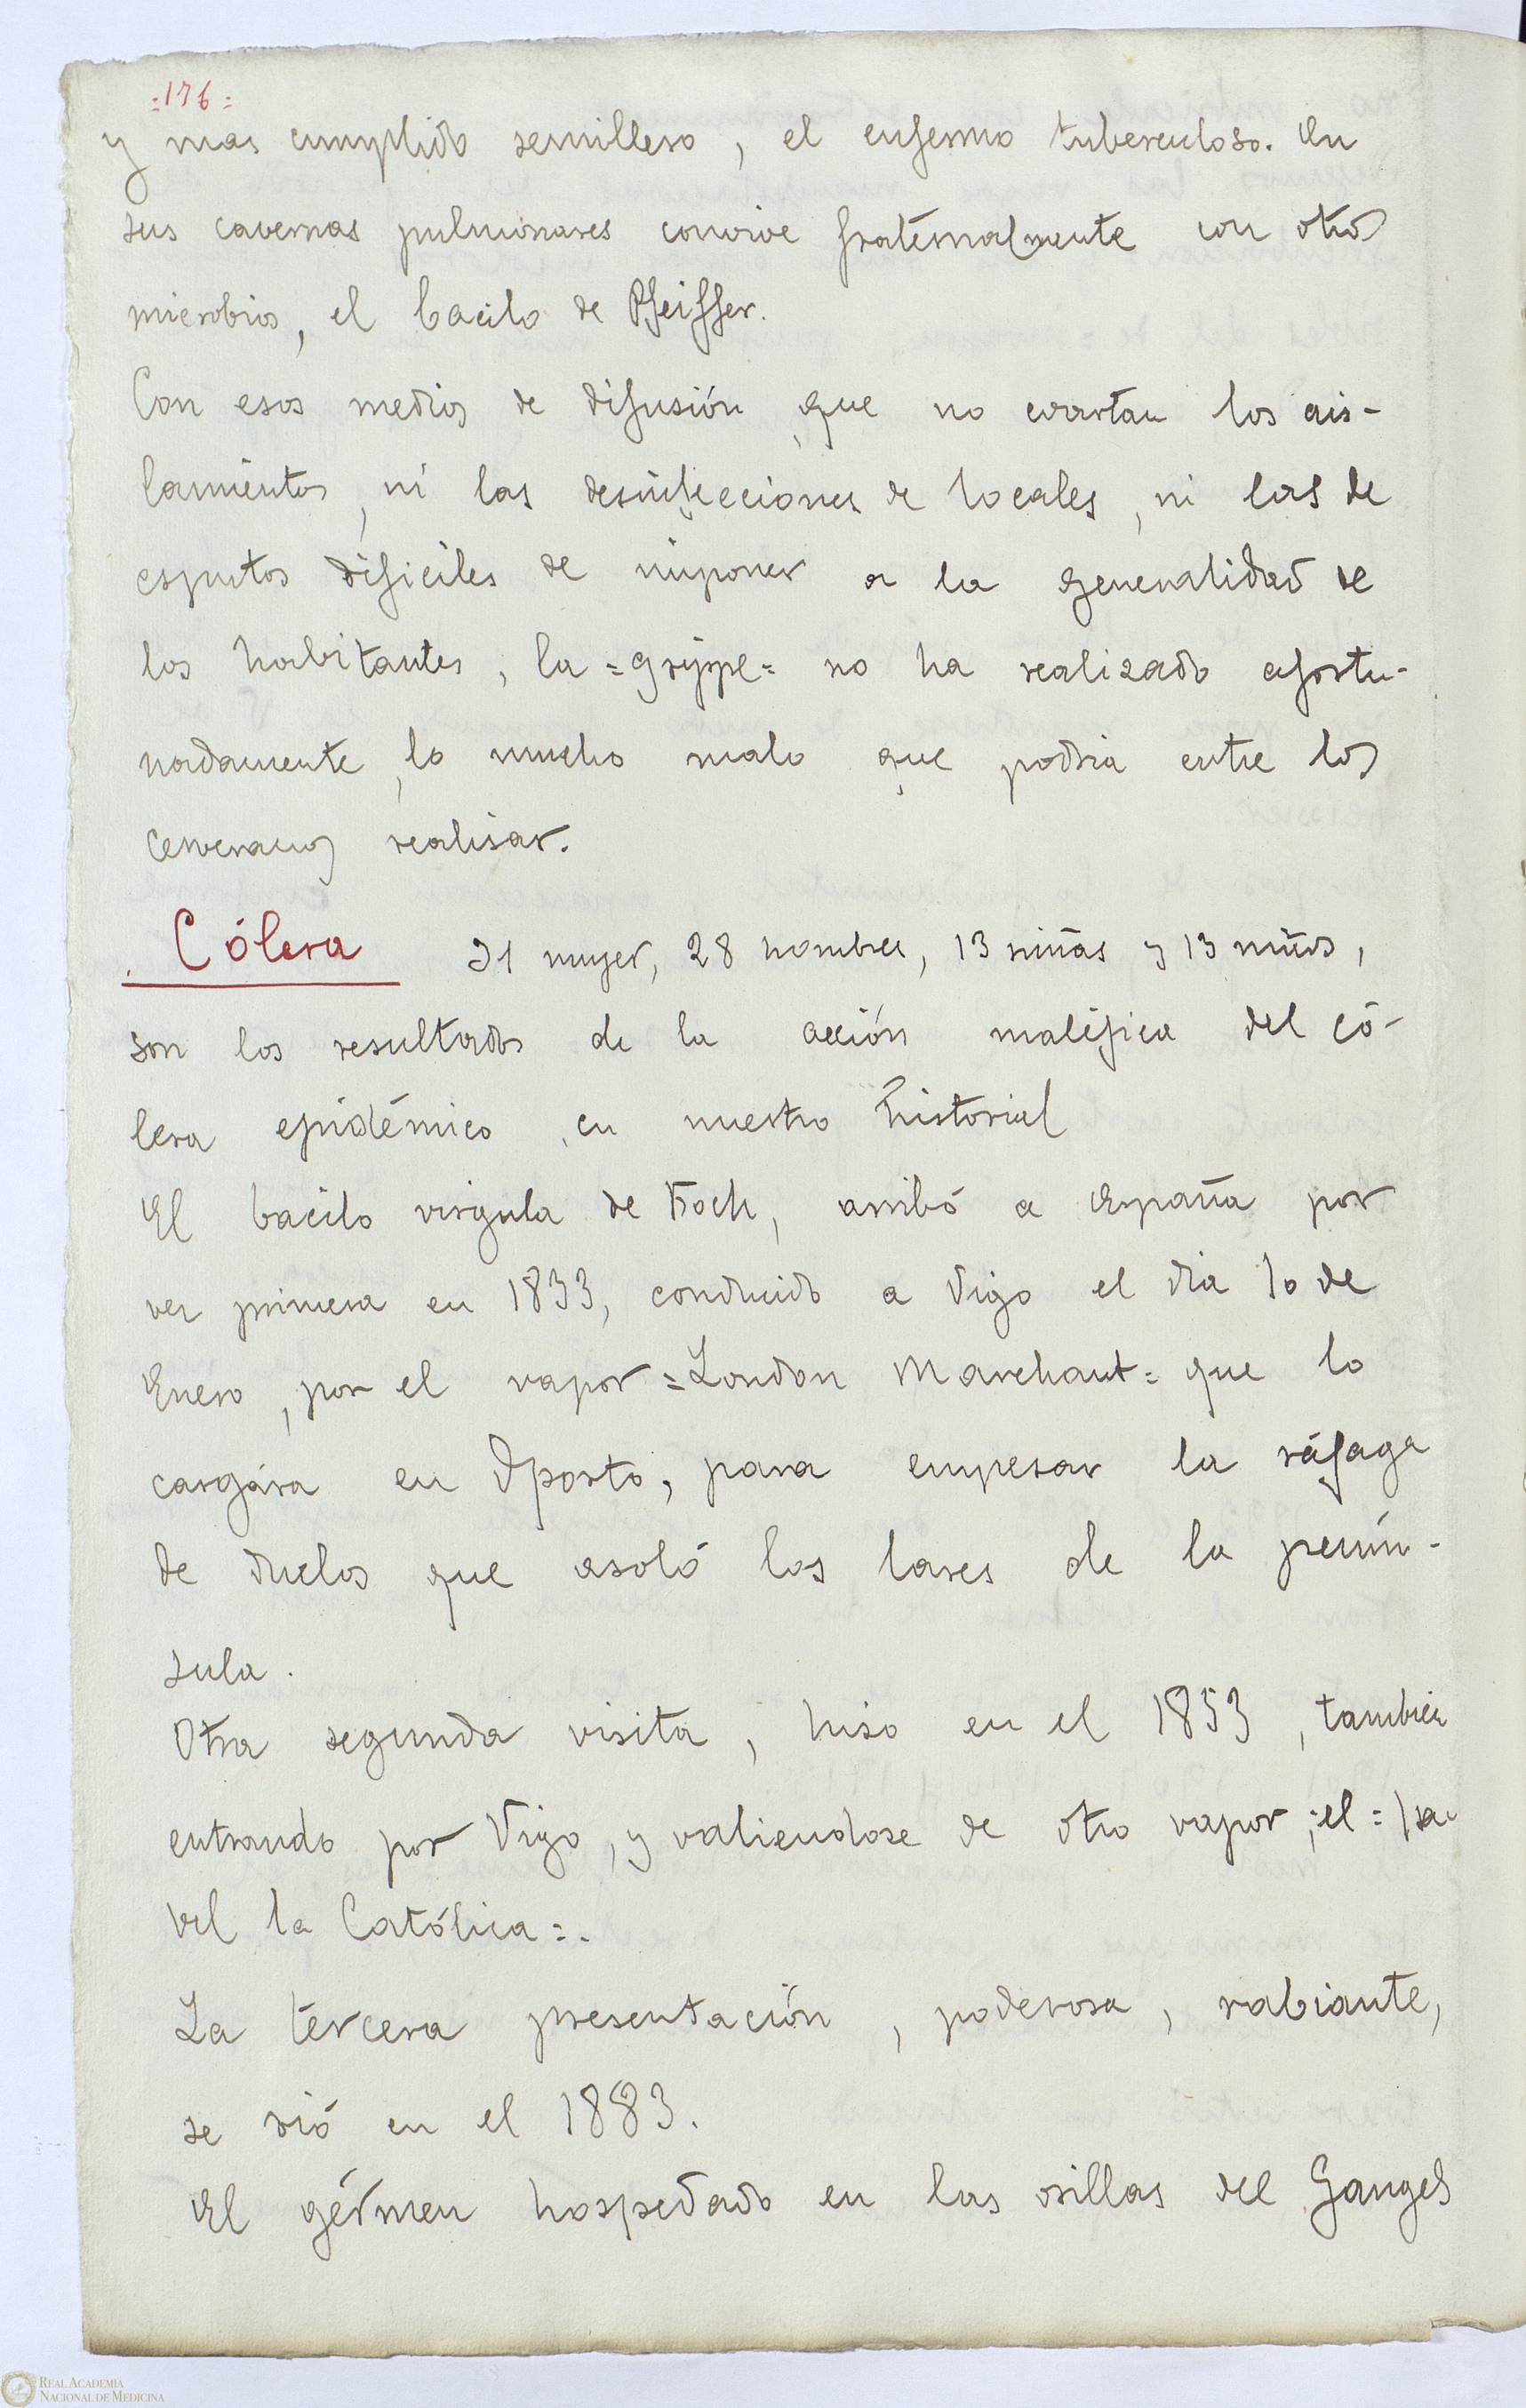 =176=
y mas cumplido semillero, el enfermo tuberculoso. En
sus cavernas pulmonares convive fraternalmente con otros
microbios, el bacilo de Pfeiffer.
Con esos medios de difusión, que no coartan los ais-
lamientos, ni las desinfecciones de locales, ni las de
esputos dificiles de imponer a la generalidad de
los habitantes, la =grippe= no ha realizado afortu-
nadamente, lo mucho malo que podria entre los
cerveranos realisar.
Cólera 21 mujer, 28 hombres, 13 niñas y 13 niños,
son los resultados de la acción maléfica del có-
lera epidémico, en nuestro historial
El bacilo virgula de Koch, arribó a España por
vez primera en 1833, conducido a Vigo el dia 10 de
Enero, por el vapor =London Marchant= que lo
cargára en Oporto, para empesar la ráfaga
de duelos que asoló los lares de la penín-
sula.
Otra segunda visita, hiso en el 1853, tambien
entrando por Vigo, y valiendose de otro vapor, el = Isa
bel la Católica=.
La tercera presentación, poderosa, rabiante,
se dió en el 1883.
El gérmen hospedado en las orillas del Ganges
REAL ACADEMIA
NACIONAL DE MEDICINA